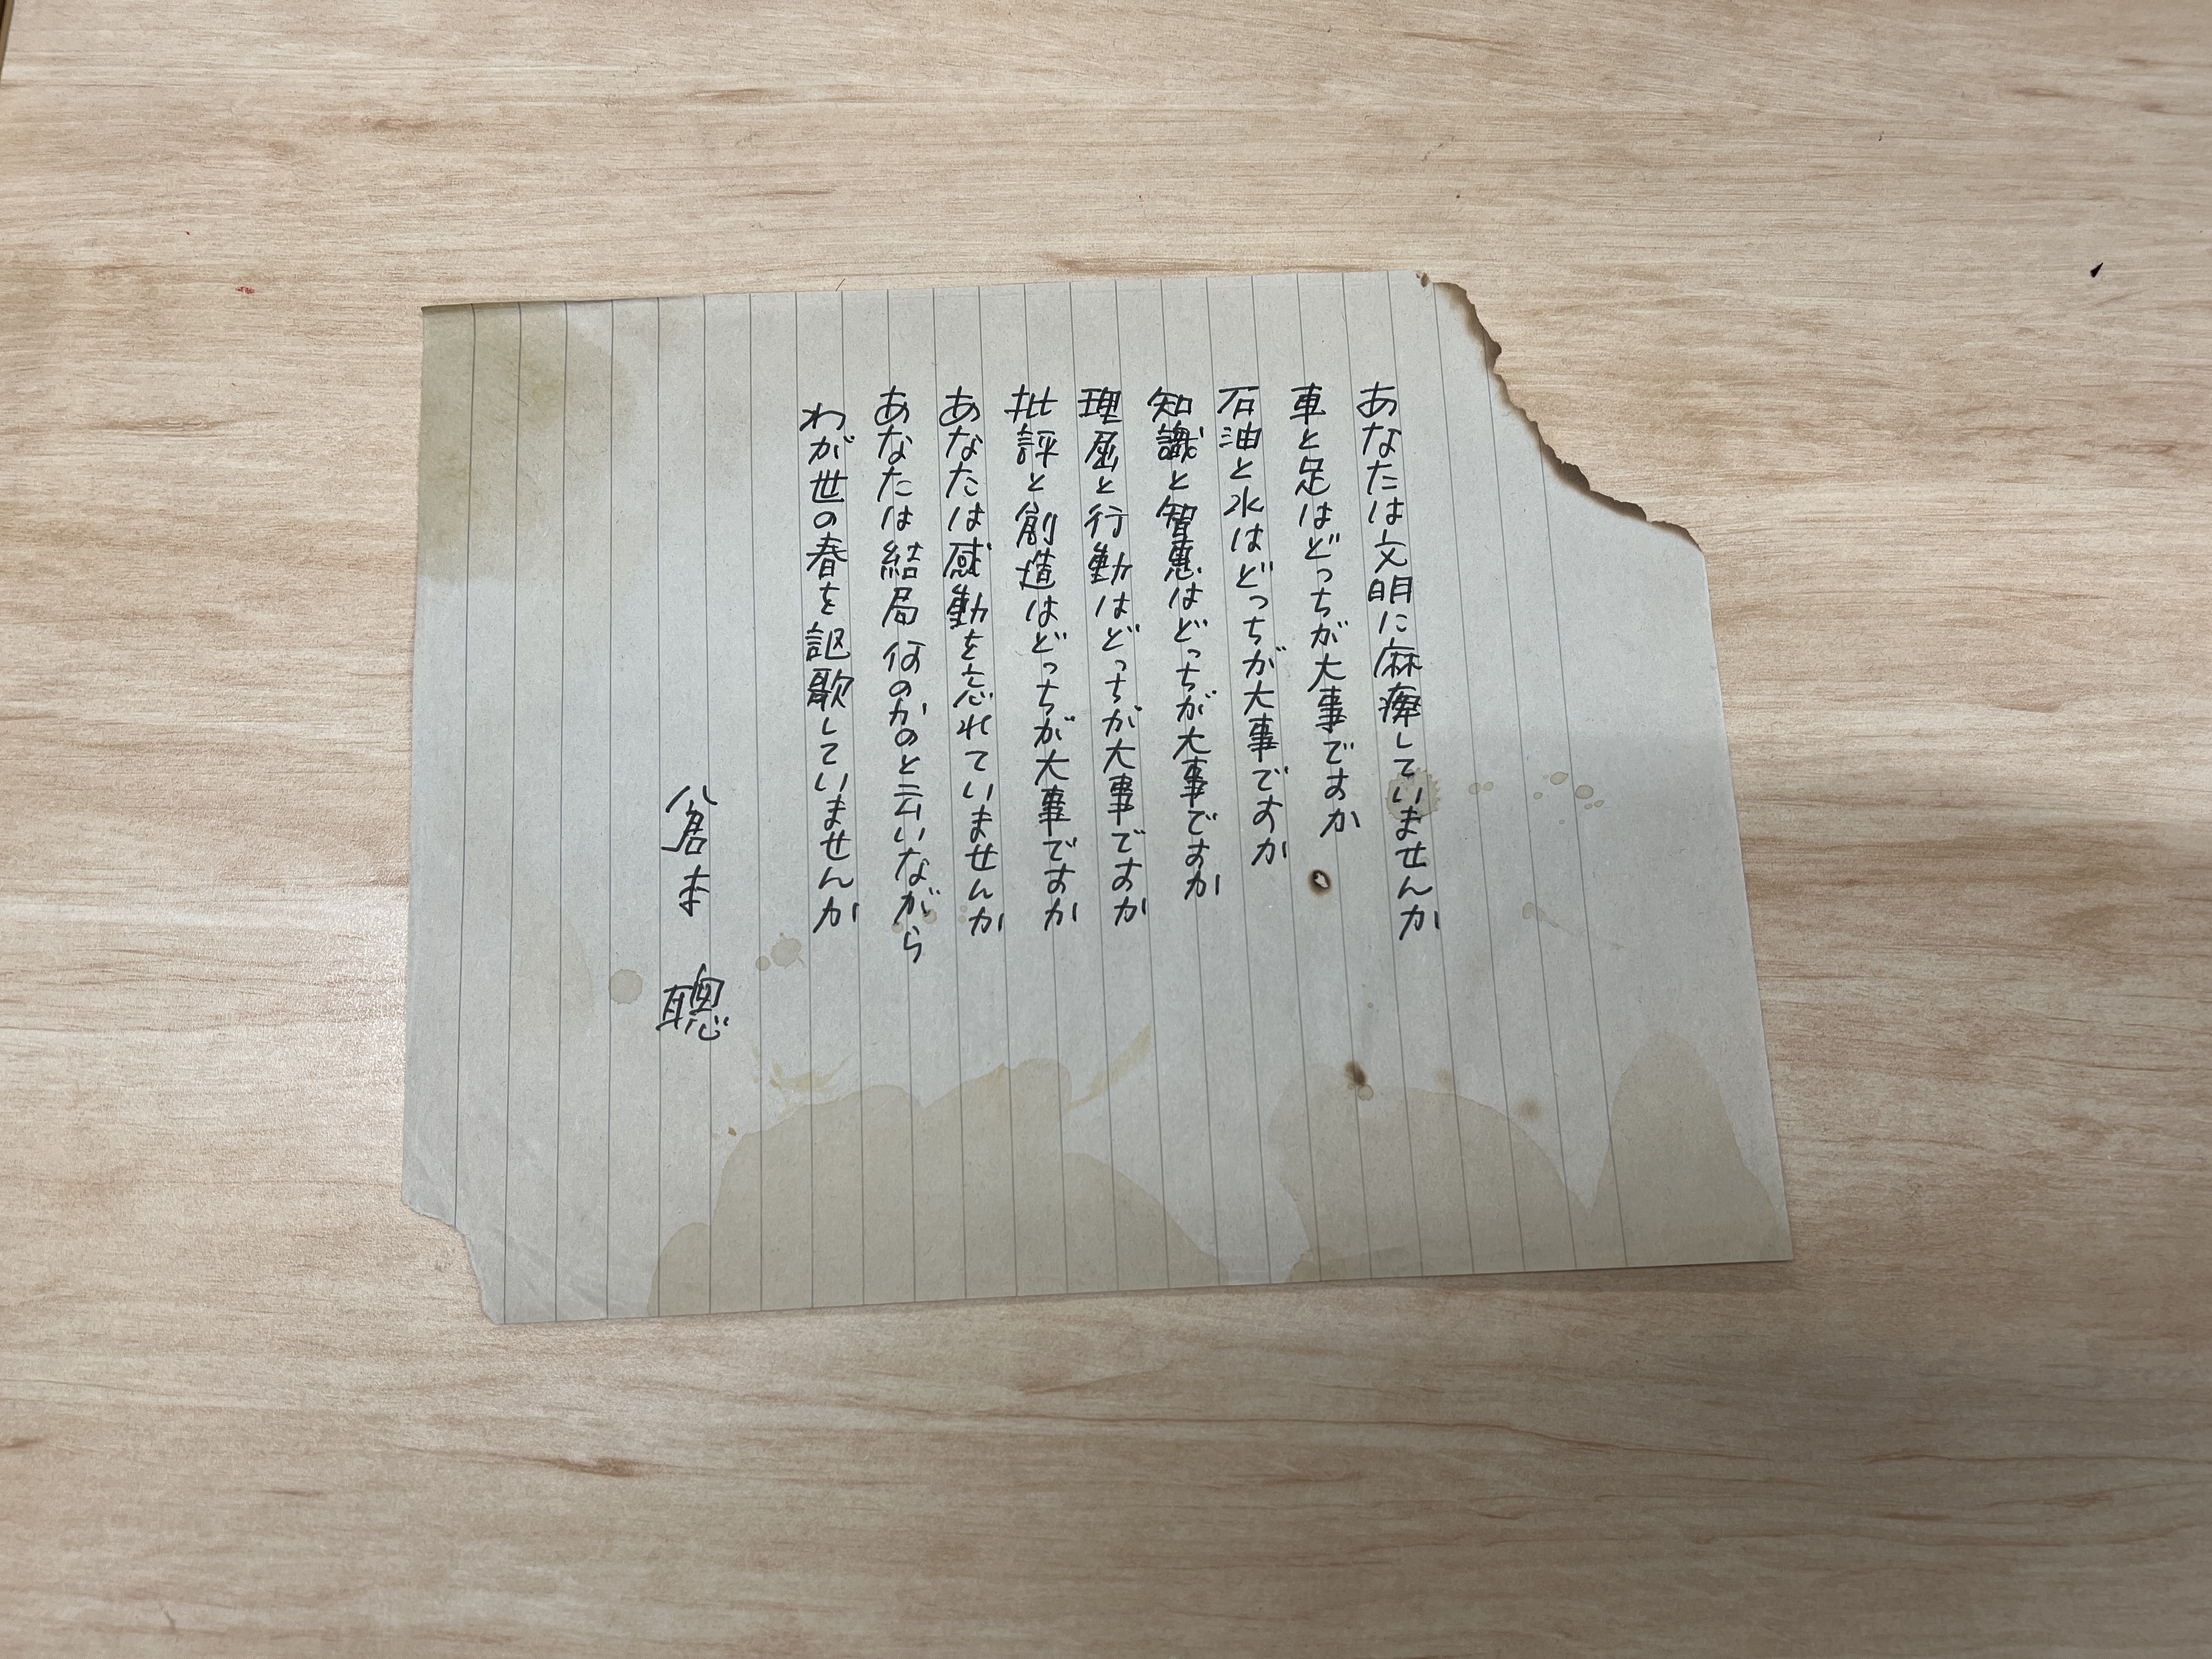 あなたは文明に麻痺していませんか
車と足はどっちが大事ですか
石油と水はどっちが大事ですか
知識と智恵はどっちが大事ですか
理屈と行動はどっちが大事ですか
批評と創造はどっちが大事ですか
あなたは感動を忘れていませんか
あなたは結局何のかのと云いながら
わが世の春を謳歌していませんか
倉本 聰